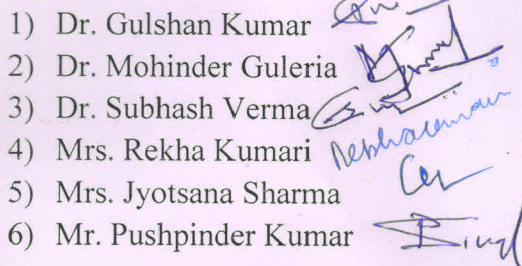 1) Dr. Gulshan Kumar
2) Dr. Mohinder Guleria
3) Dr. Subhash Verma
4) Mrs. Rekha Kumari
5) Mrs. Jyotsana Sharma
6) Mr. Pushpinder Kumar